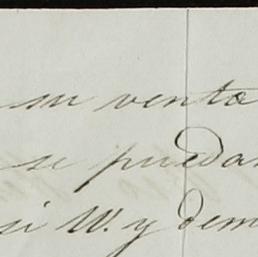 su venta
se puedan
si W. y dem